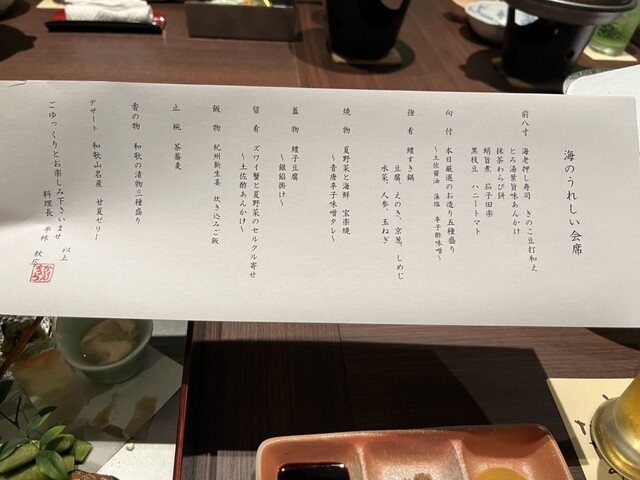 海のうれしい会席
前八寸 海老押し寿司 きのこ豆打和え
とろ湯葉旨味あんかけ
抹茶わらび餅
蛸旨煮 茄子田楽
黒枝豆 ハニートマト
向付 本日厳選のお造り五種盛り
～土佐醤油 藻塩 辛子酢味噌～
強肴 鱧すき鍋
豆腐、えのき、京葱、しめじ
水菜、人参、玉ねぎ
焼物 夏野菜と海鮮 宝楽焼
～青唐辛子味噌タレ～
蓋物 鱧子豆腐
～銀餡掛け～
留肴 ズワイ蟹と夏野菜のセルクル寄せ
～土佐酢あんかけ～
飯物 紀州新生姜 炊き込みご飯
止椀 茶蕎麦
香の物 和歌の漬物三種盛り
デザート 和歌山名産 甘夏ゼリー
ごゆっくりとお楽しみ下さいませ
以上
料理長 平林